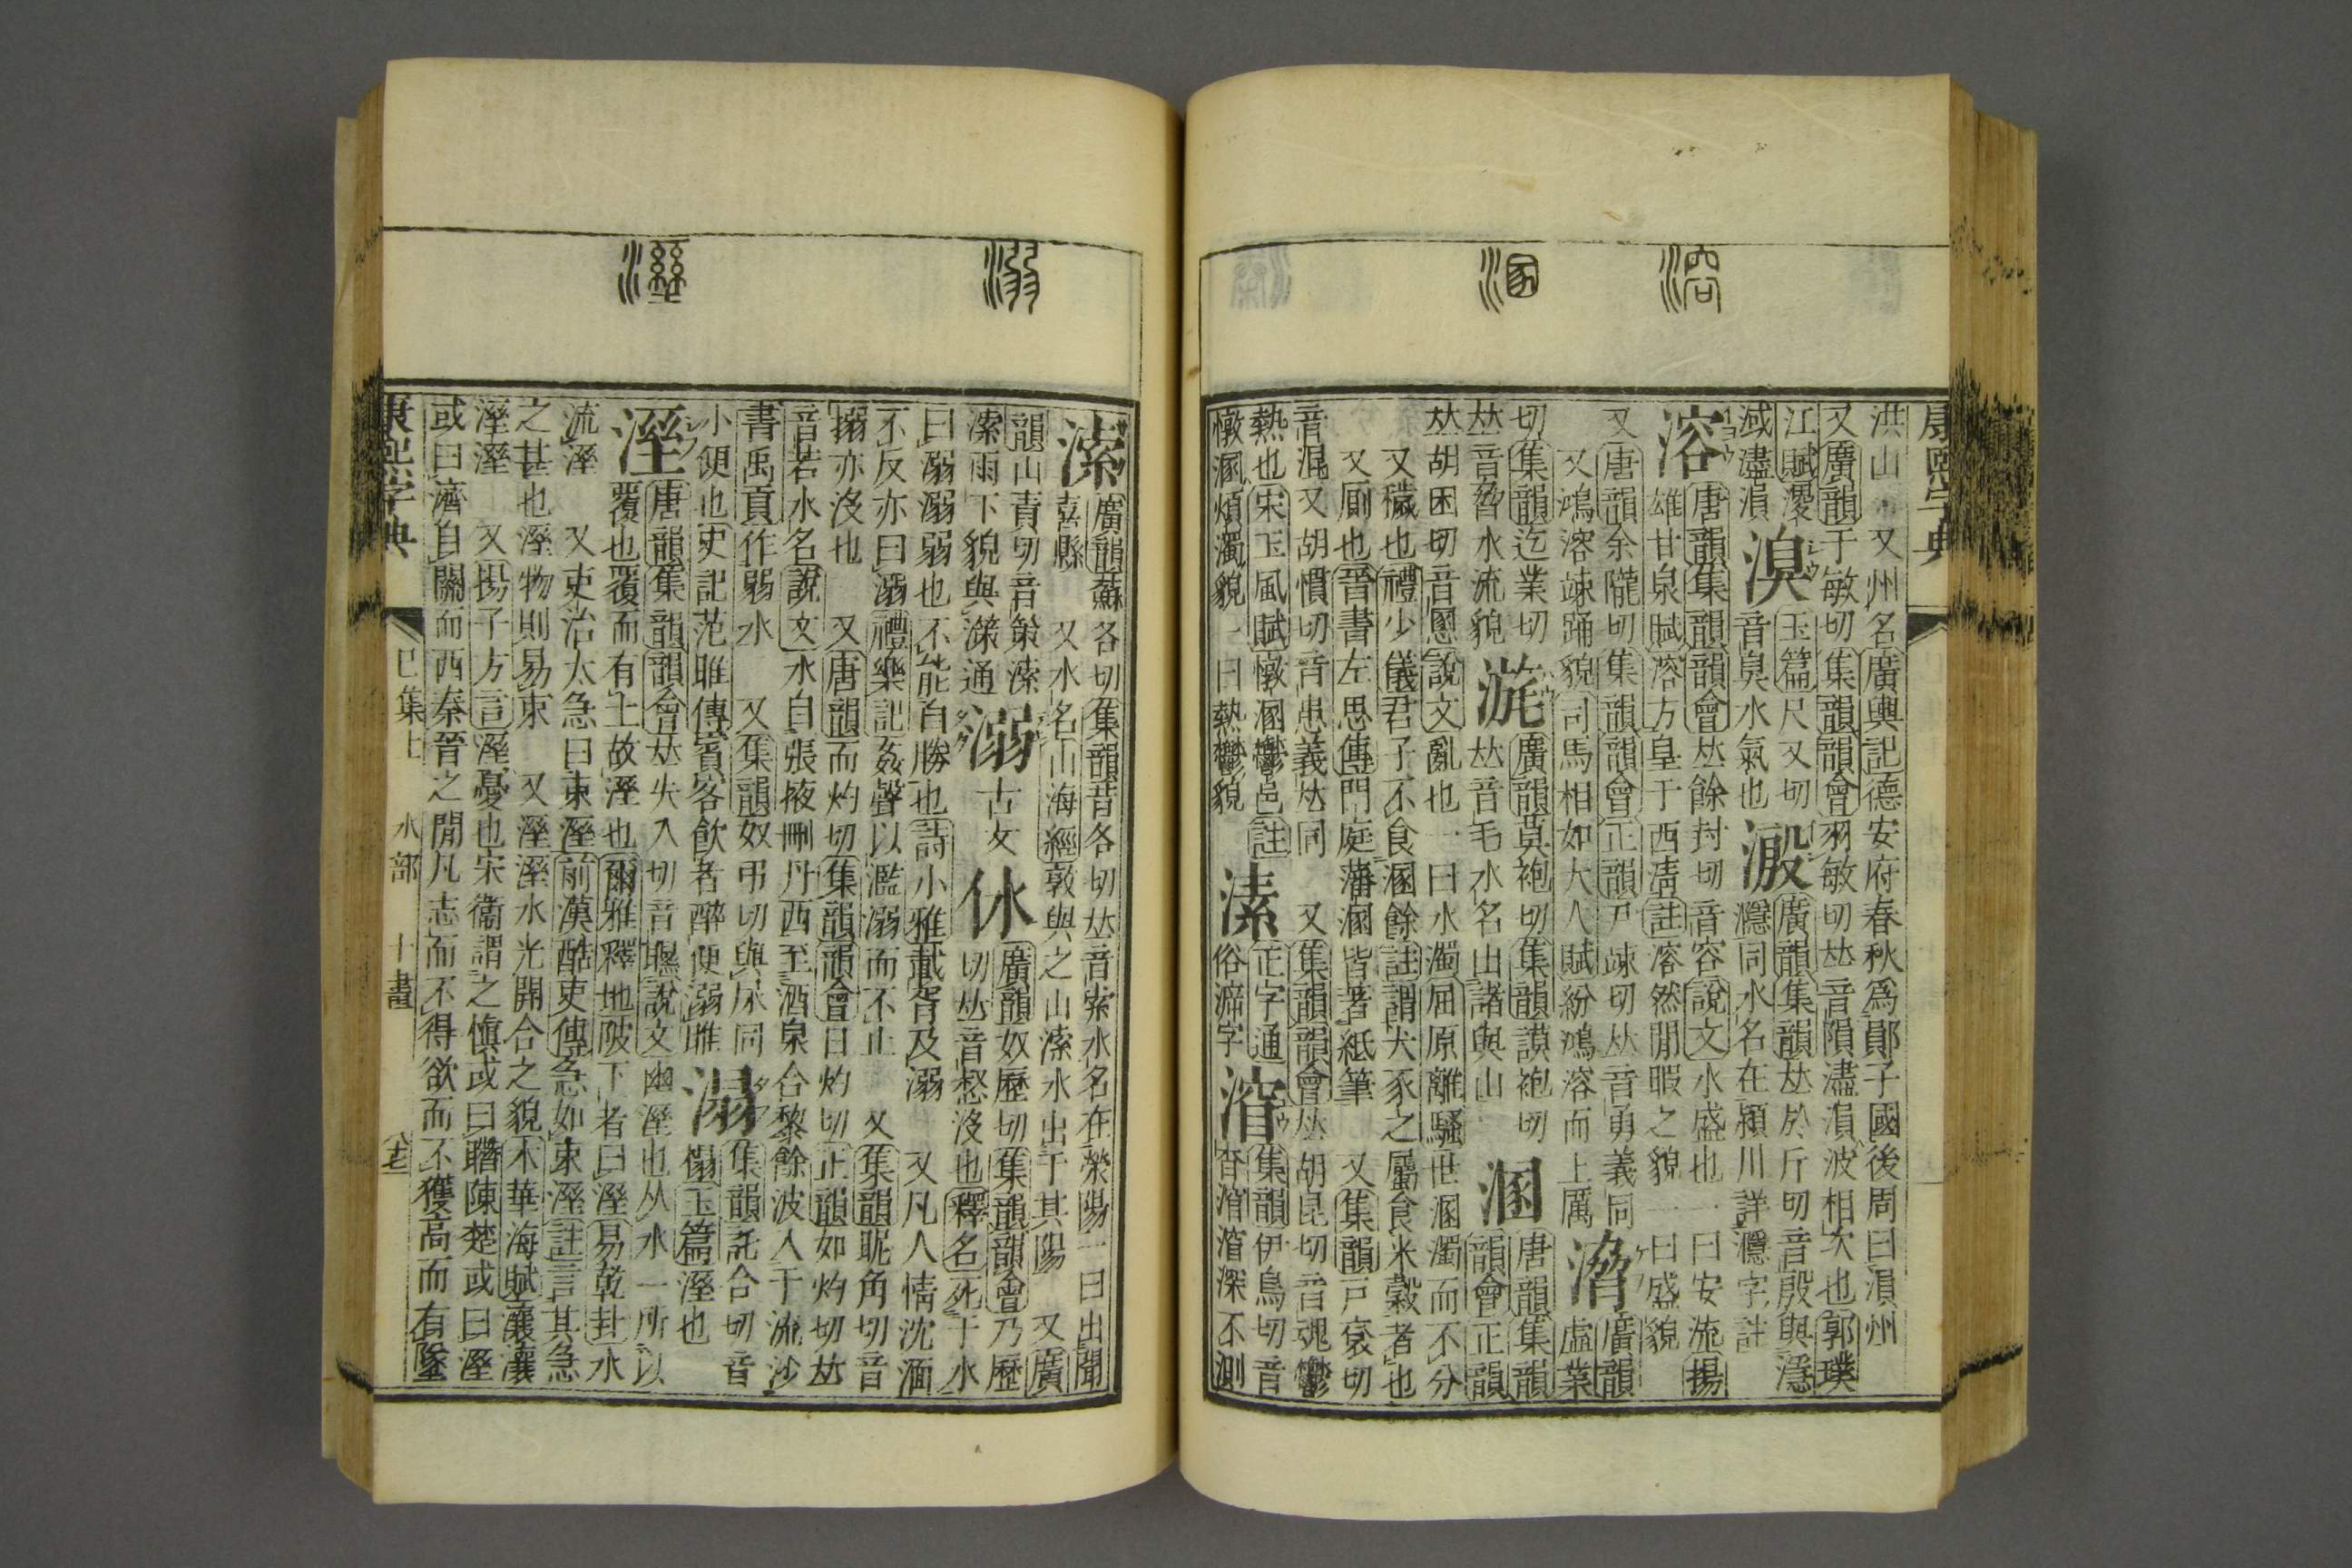 康熙字典
洪山又州名廣輿記德安府春秋爲鄖子國後周曰溳州
又廣韻于敏切集韻韻會羽敏切𠀤音隕濜溳波相次也郭璞
江賦溭淢濜溳
溴玉篇尺又切音臭水氣也
溵廣韻集韻𠀤於斤切音殷與㶏濦同水名在潁川詳濦字註
溶唐韻集韻韻會𠀤餘封切音容說文水盛也一曰安流揚
雄甘泉賦溶方皇于西淸註溶然閒暇之貌一曰盛貌
又唐韻余隴切集韻韻會正韻尹竦切𠀤音勇義同
又鴻溶竦踊貌司馬相如大人賦紛鴻溶而上厲
廣韻虛業
切集韻迄業切𠀤音脅水流貌
廣韻莫袍切集韻謨袍切𠀤音毛水名山諸與山
溷唐韻集韻韻會正韻
𠀤胡困切音慁說文亂也一曰水濁屈原離騷世溷濁而不分
又穢也禮少儀君子不食溷餘註謂犬豕之屬食米穀者也
又厠也晉書左思傳門庭藩溷皆著紙筆又集韻戸袞切
音混又胡慣切音患義𠀤同又集韻韻會𠀤胡昆切音魂鬱
熱也宋玉風賦憞溷鬱邑註憞溷煩濁貌一曰熱鬱貌
溸正字通俗澼字
溍集韻伊鳥切音杳溍溍深不測
溹廣韻蘇各切集韻昔各切𠀤音索水名在滎陽一曰出聞
喜縣又水名山海經敦與之山溹水出于其陽又廣
韻山責切音策溹溹雨下貌與㴙通
溺古文㲻廣韻奴歷切集韻韻會乃歷
切𠀤音惄沒也釋名死于水
曰溺溺弱也不能自勝也詩小雅載胥及溺又凡人情沈湎
不反亦曰溺禮樂記姦聲以濫溺而不止又集韻昵角切音
搦亦沒也又唐韻而灼切集韻韻會日灼切正韻如灼切𠀤
音若水名說文水自張掖刪丹西至酒泉合黎餘波入于流沙
書禹貢作弱水又集韻奴弔切與尿同
小便也史記范睢傳賓客飮者醉便溺睢
溻集韻託合切音
榻玉篇溼也
溼唐韻集韻韻會𠀤失入切音聴說文幽溼也从水一所以
覆也覆而有土故溼也爾雅釋地陂下者曰溼易乾卦水
流溼又吏治太急曰束溼前漢酷吏傳急如束溼註言其急
之甚也溼物則易束又溼溼水光開合之貌木華海賦瀼瀼
溼溼又揚子方言溼憂也宋衞謂之愼或曰䁾陳楚或曰溼
或曰濟自關而西秦晉之閒凡志而不得欲而不獲高而有墜
康熙字典
巳集上
水部
十畫